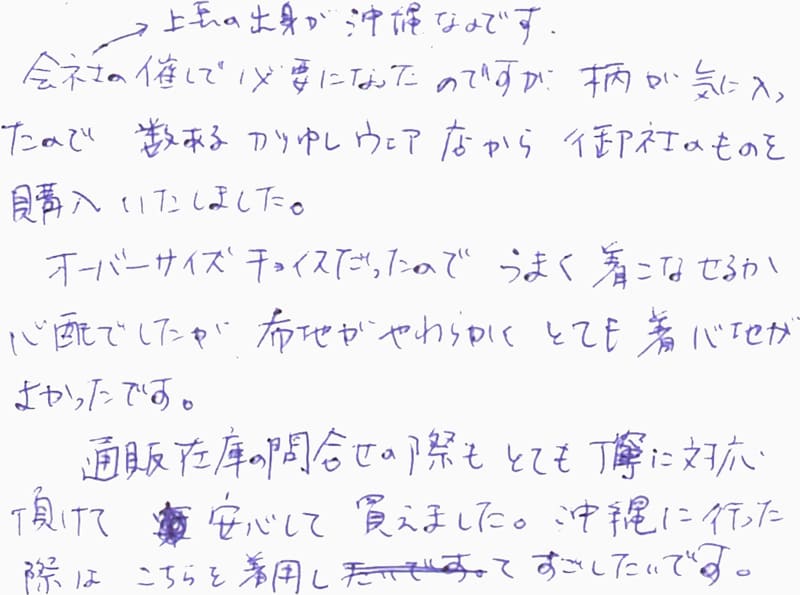 上長の出身が沖縄なのです.
会社の催しで必要になったのですが 柄が気に入っ
たので 数ある かりゆしウェア店から 御社のものを
購入いたしました。
オーバーサイズチョイスだったので うまく着こなせるか
心配でしたが 布地がやわらかく とても着心地が
よかったです。
通販在庫の問合せの際も とても丁寧に対応
頂けて 安心して 買えました。沖縄に行った
際は こちらを着用したいです。て すごしたいです。